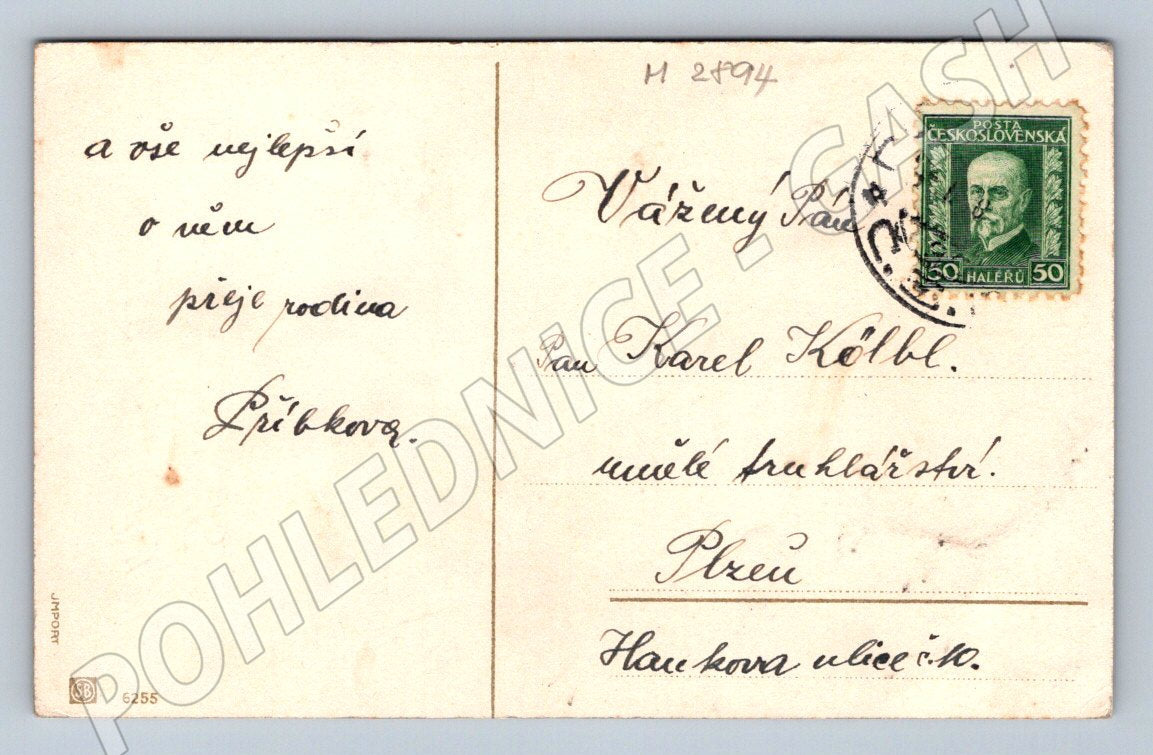 M 2894
a vše nejlepší
o něm
přeje rodina
Příbkova.
JMPORT
SB
6255
POŠTA
ČESKOSLOVENSKÁ
50 HALÉŘŮ 50
Vážený Pán
Pan Karel Kölbl.
umělé truhlářství.
Plzeň
Hankova ulice č. 10.
POHLEDNICE - GASH